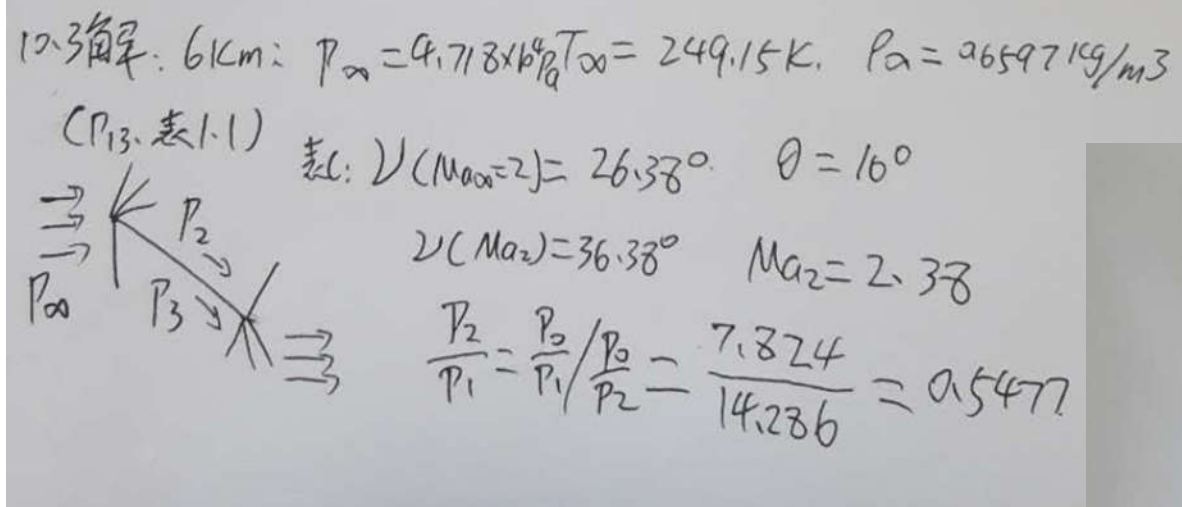 10.3解: 6Km: P∞=4.718×10⁴Pa T∞=249.15K. ρa=0.6597kg/m3
(P13、表1.1)
表C: ν(Ma∞=2)=26.38° θ=10°
ν(Ma₂)=36.38° Ma₂=2.38
P∞ P₂ P₃
P₂/P₁=P₀/P₁/P₀/P₂=7.824/14.286=0.5477